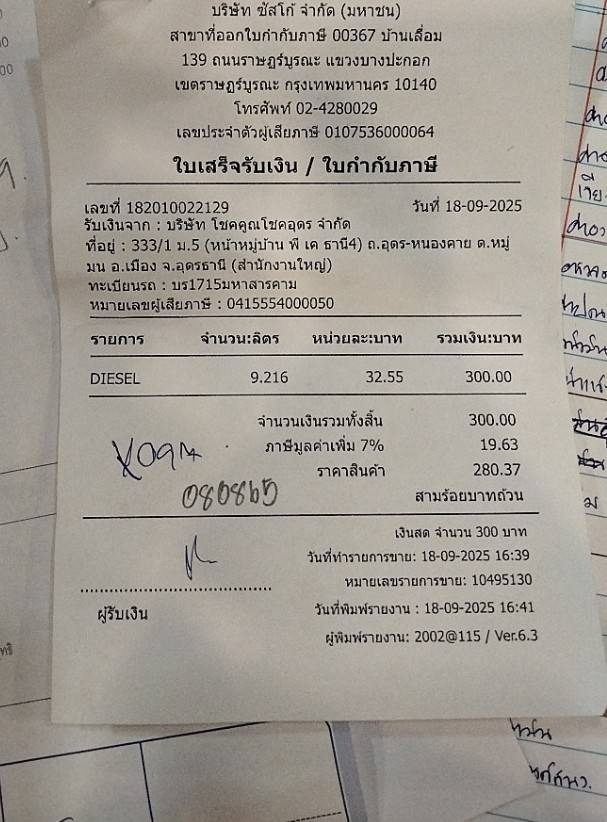 บริษัท ซัสโก้ จำกัด (มหาชน)
สาขาที่ออกใบกำกับภาษี 00367 บ้านเลื่อม
139 ถนนราษฎร์บูรณะ แขวงบางปะกอก
เขตราษฎร์บูรณะ กรุงเทพมหานคร 10140
โทรศัพท์ 02-4280029
เลขประจำตัวผู้เสียภาษี 0107536000064
ใบเสร็จรับเงิน / ใบกำกับภาษี
เลขที่ 182010022129 วันที่ 18-09-2025
รับเงินจาก : บริษัท โชคคูณโชคอุดร จำกัด
ที่อยู่ : 333/1 ม.5 (หน้าหมู่บ้าน พี เค ธานี4) ถ.อุดร-หนองคาย ต.หมู่
มน อ.เมือง จ.อุดรธานี (สำนักงานใหญ่)
ทะเบียนรถ : บร1715มหาสารคาม
หมายเลขผู้เสียภาษี : 0415554000050
รายการ จำนวน:ลิตร หน่วยละ:บาท รวมเงิน:บาท
DIESEL 9.216 32.55 300.00
จำนวนเงินรวมทั้งสิ้น 300.00
ภาษีมูลค่าเพิ่ม 7% 19.63
ราคาสินค้า 280.37
080865
สามร้อยบาทถ้วน
เงินสด จำนวน 300 บาท
วันที่ทำรายการขาย: 18-09-2025 16:39
หมายเลขรายการขาย: 10495130
ผู้รับเงิน
วันที่พิมพ์รายงาน : 18-09-2025 16:41
ผู้พิมพ์รายงาน: 2002@115 / Ver.6.3